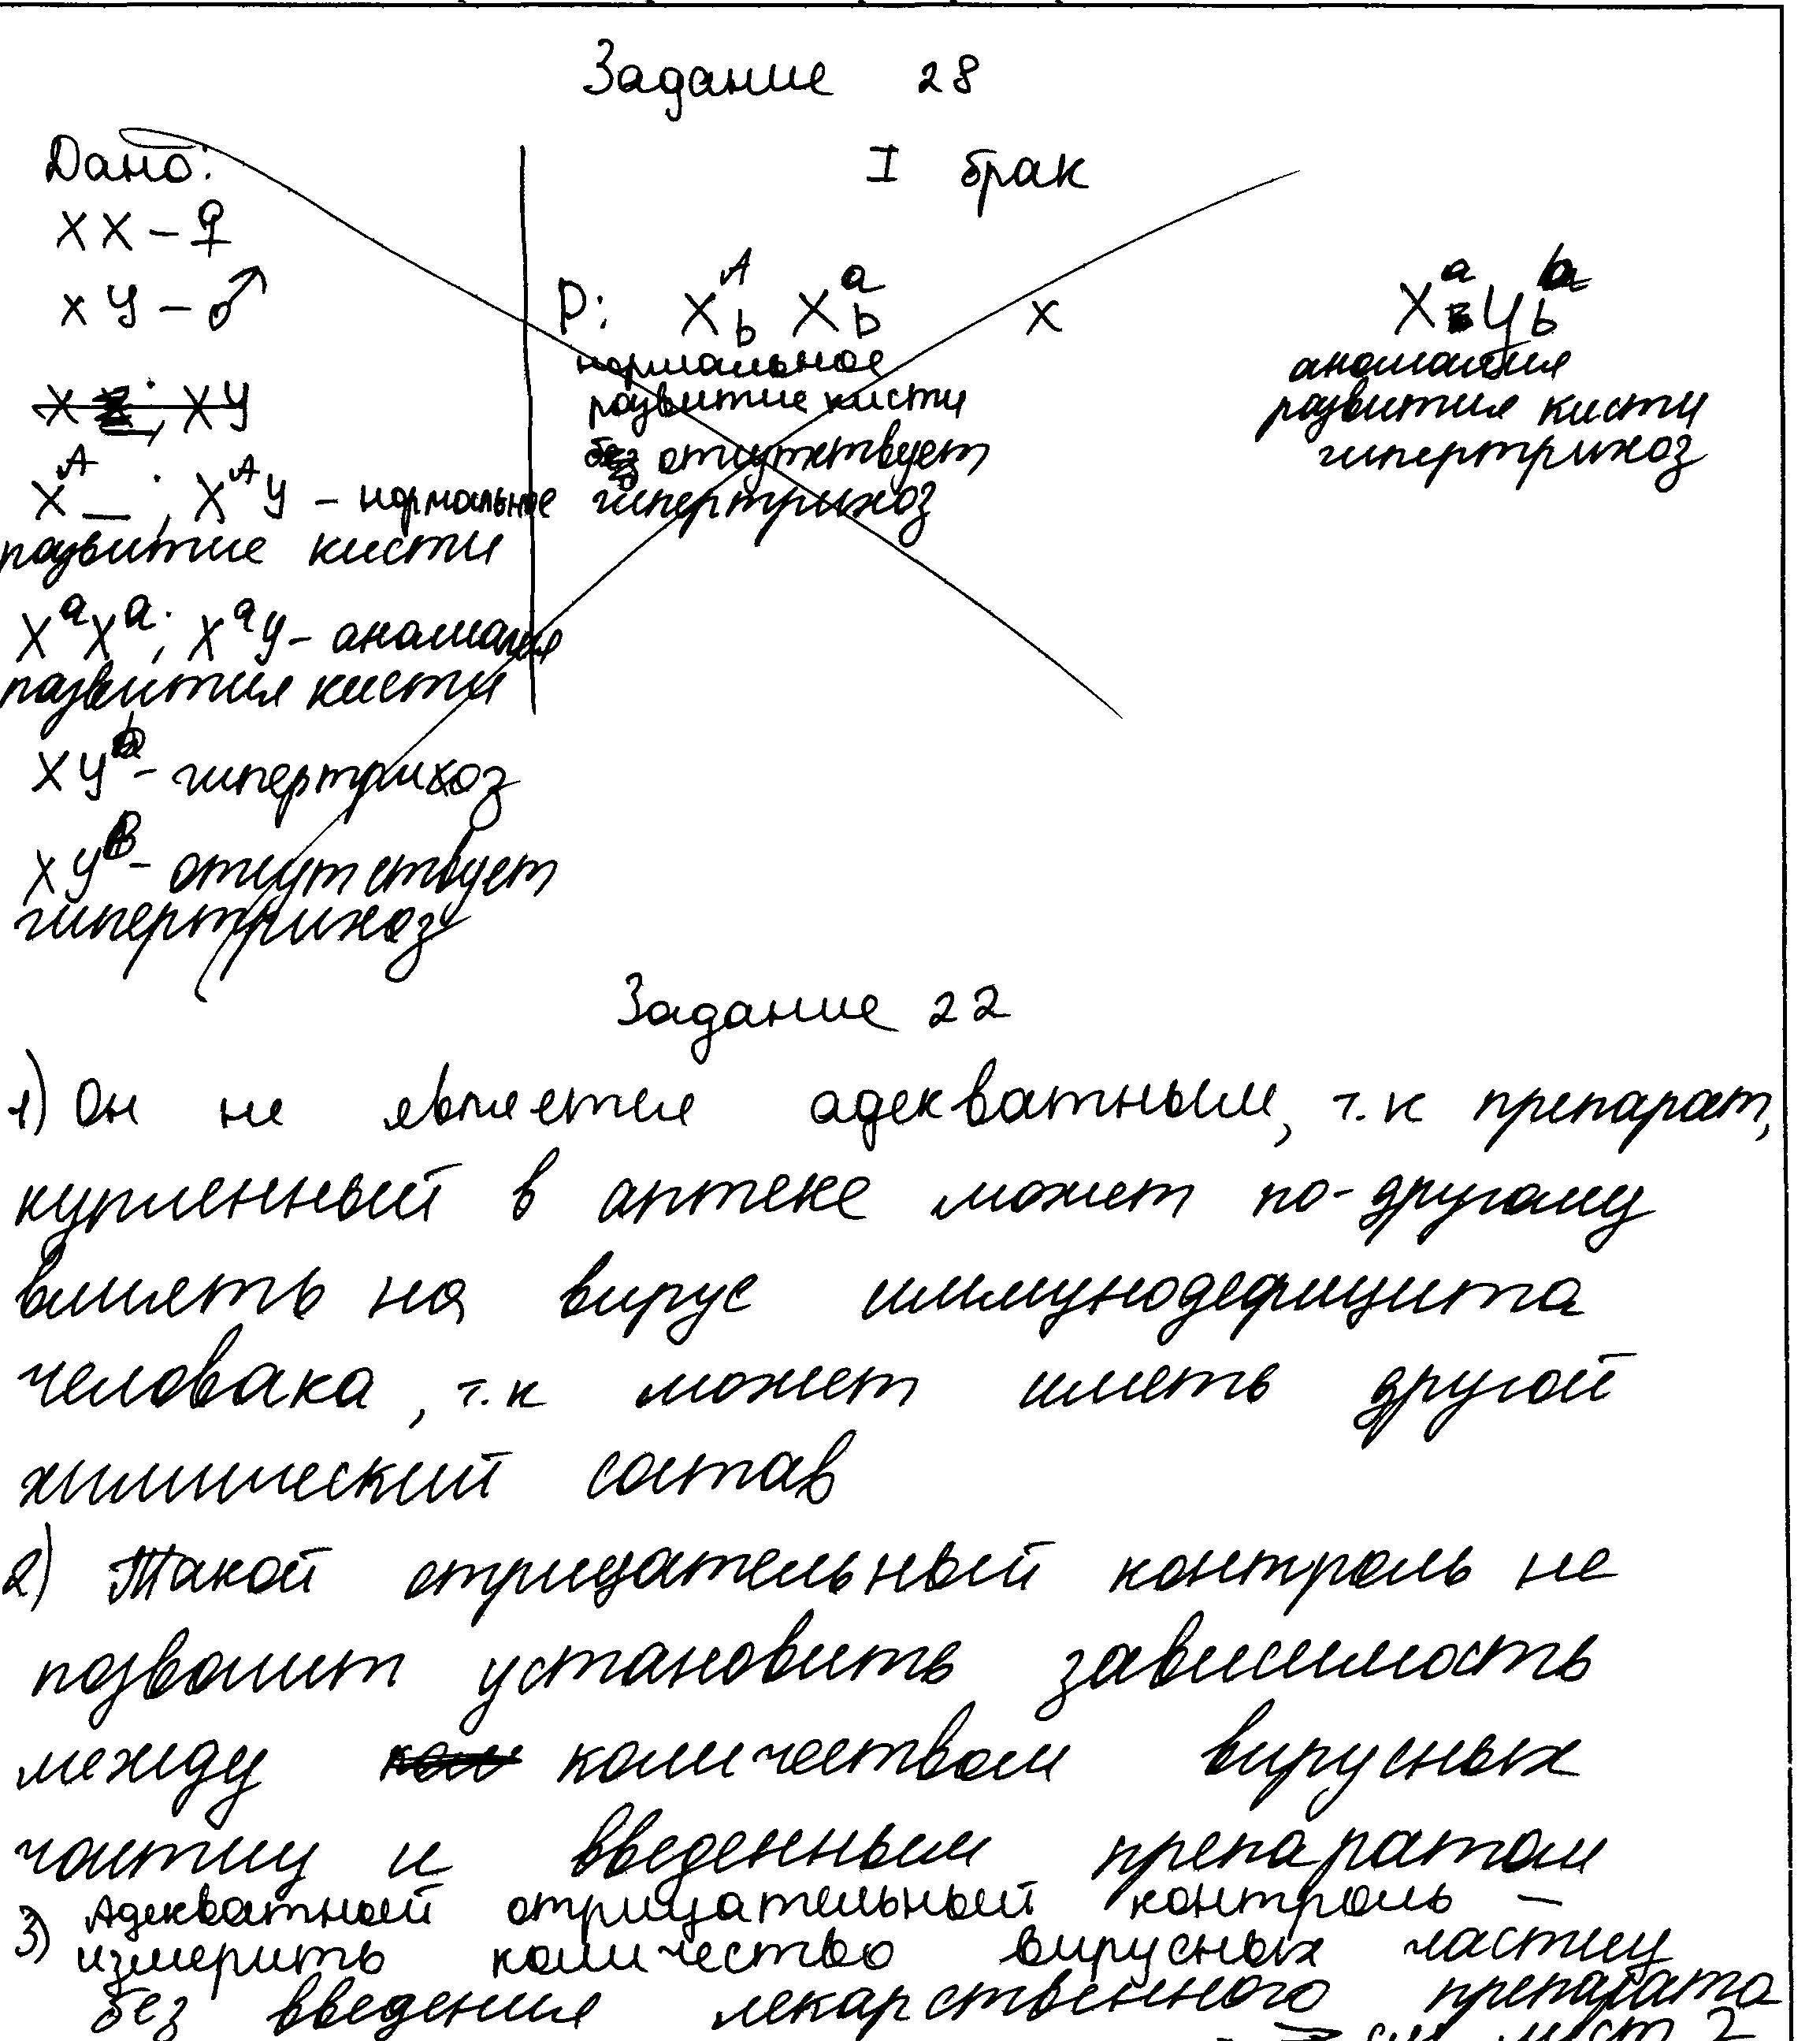 Задание 28
Дано:
XX – ♀
XY – ♂
XY
X^A _ ; X^A Y – нормальное
развитие кисти
X^a X^a ; X^a Y – аномалия
развития кисти
XY^b – гипертрихоз
XY^B – отсутствует
гипертрихоз
I брак
P: X^A_b X^a_b x X^a Y_b
нормальное
развитие кисти
отсутствует
гипертрихоз
аномалия
развития кисти
гипертрихоз
Задание 22
1) Он не является адекватным, т.к препарат,
купленный в аптеке может по-другому
влиять на вирус иммунодефицита
человака, т.к может иметь другой
химический состав
2) Такой отрицательный контроль не
позволит установить зависимость
между кол количеством вирусных
частиц и введенным препаратом
3) Адекватный отрицательный контроль –
измерить количество вирусных частиц
без введения лекарственного препарата
→ см лист 2